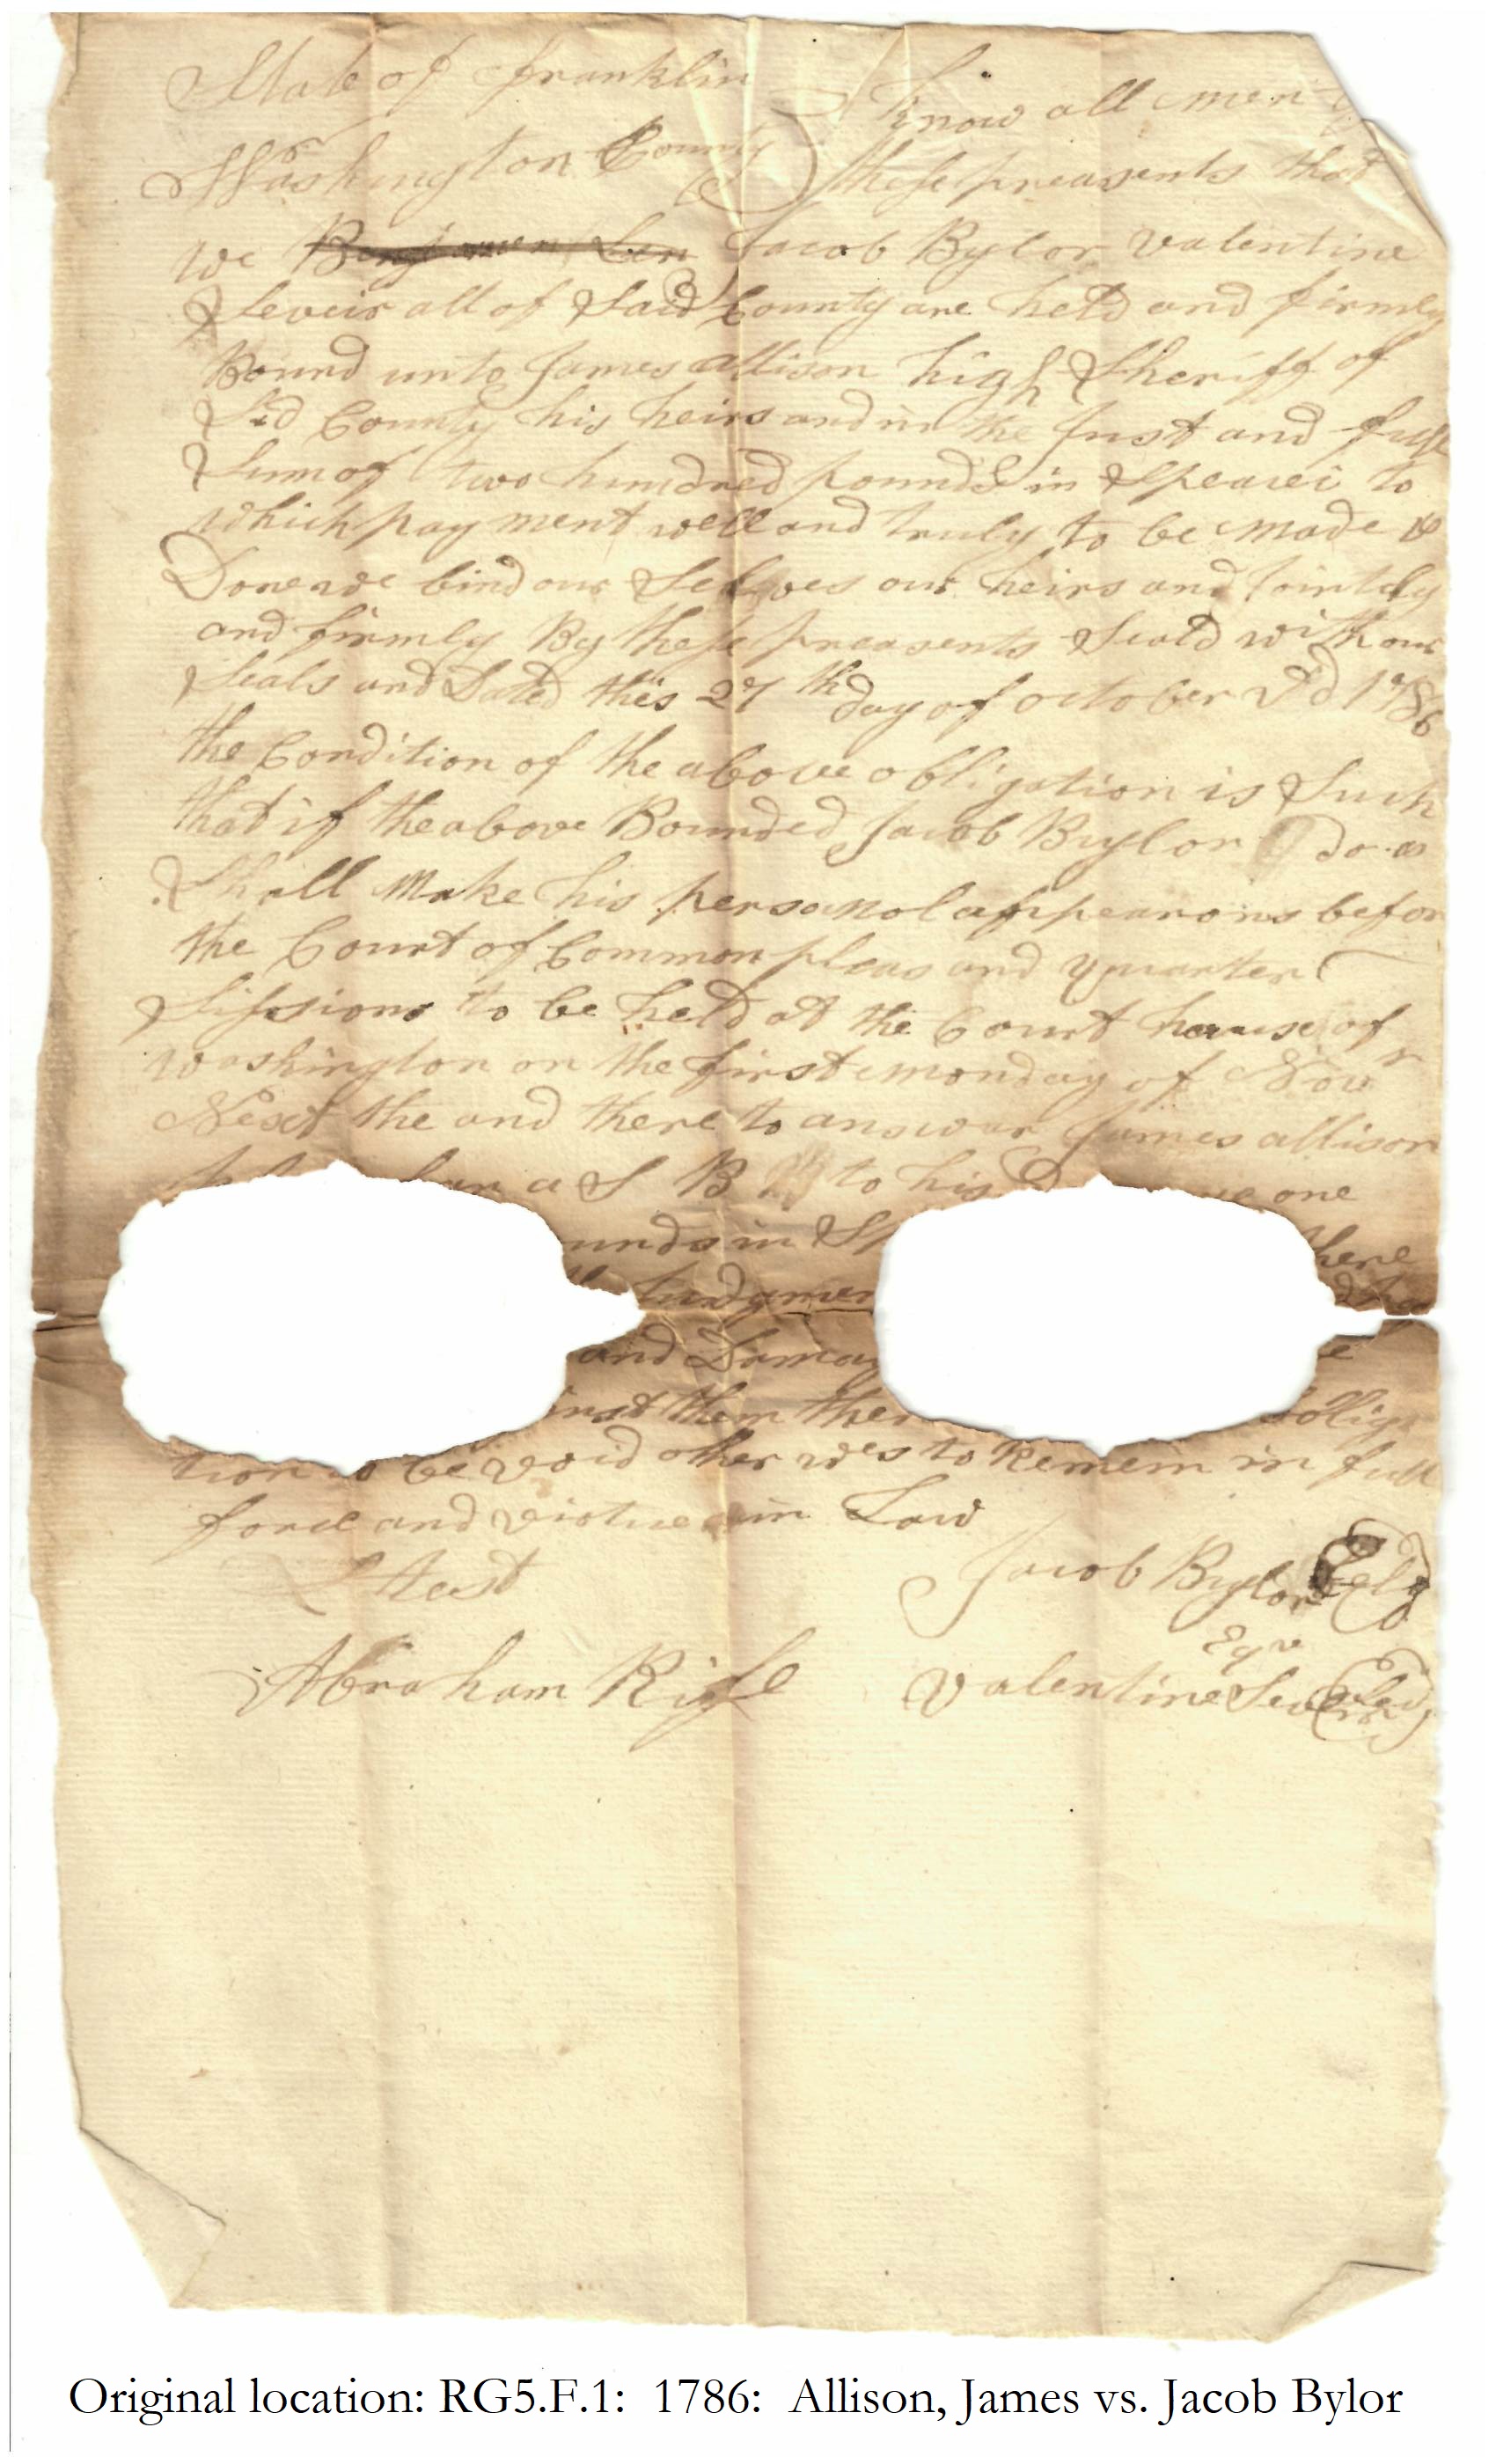 State of Franklin
Know all men
Washington County
these preasents that
we Jacob Bylor valentine
Seveir all of Said County are held and firmly
Bound unto James allison high Sheriff of
Sd County his heirs and in the Just and full
Sum of two hundred pounds in Speacei to
which pay ment well and truly to be made &
Done we bind our Selves our heirs and Jointely
and firmly By these preasents Seald with our
Seals and Dated this 27th day of october Ad 1786
the Condition of the above obligation is Such
that if the above Bounded Jacob Bylor do as
Shall Make his personol appearons befor
the Court of Common pleas and quarter
Sissions to be held at the Court hause of
washington on the first monday of Novr
Next the and there to answar James allison
a S B to his one
unds in here
Judgmen
and Damag
inst them ther obliga
tion to be void other wes to Remem in full
force and virtue in Law
test
Jacob Bylor
Esqr
Abraham Rife
valentine Sev
Original location: RG5.F.1: 1786: Allison, James vs. Jacob Bylor